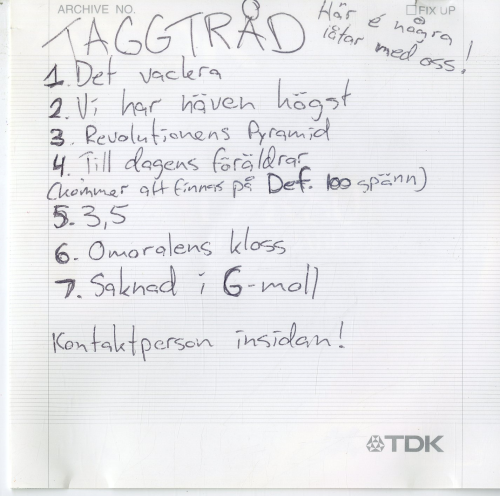 ARCHIVE NO.
FIX UP
TAGGTRÅD
Här é några
låtar med oss!
1. Det vackra
2. Vi har häven högst
3. Revolutionens Pyramid
4. Till dagens föräldrar
(kommer att finnas på Def. 100 spänn)
5. 3,5
6. Omoralens kloss
7. Saknad i G-moll
Kontaktperson insidan!
TDK